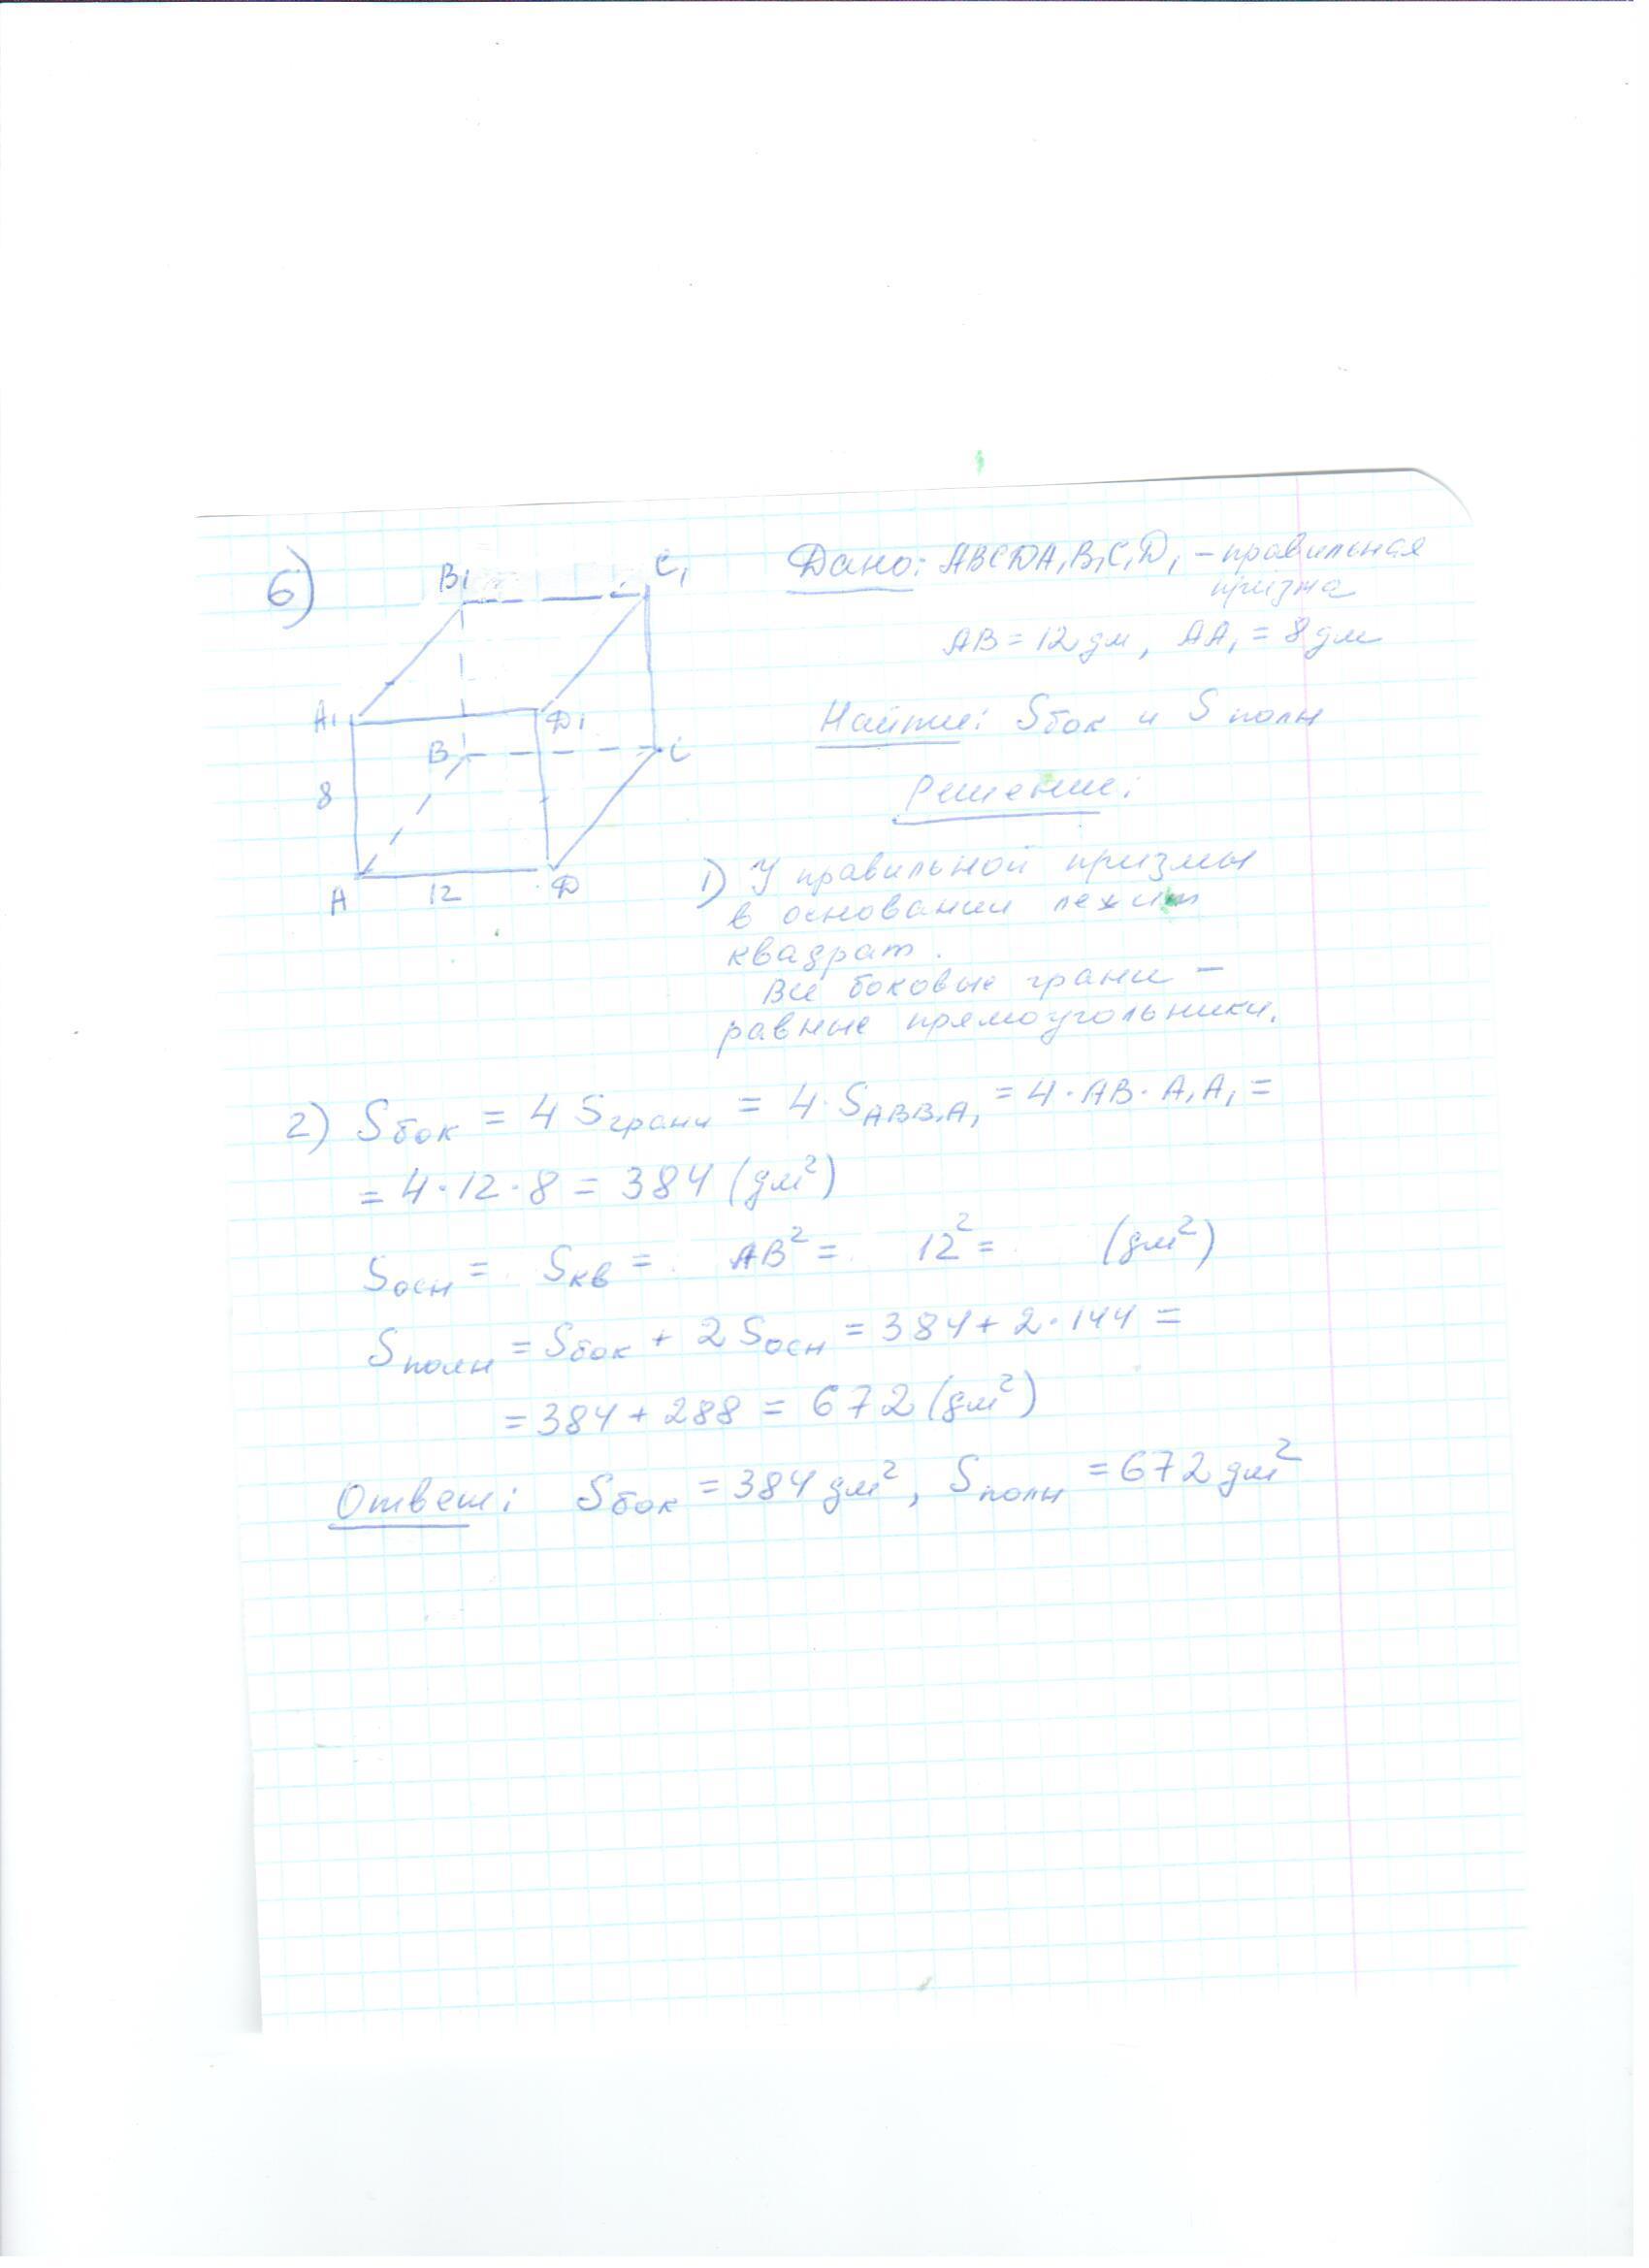 6)
B₁
C₁
Дано: ABCDA₁B₁C₁D₁ - правильная
призма
AB = 12 дм, AA₁ = 8 дм
A₁
D₁
Найти: Sбок и Sполн
B
C
8
Решение:
A
12
D
1) У правильной призмы
в основании лежит
квадрат.
Все боковые грани -
равные прямоугольники.
2) Sбок = 4 Sграни = 4·S_ABB₁A₁ = 4·AB·A₁A₁ =
= 4·12·8 = 384 (дм²)
Sосн = Sкв = AB² = 12² = (дм²)
Sполн = Sбок + 2 Sосн = 384 + 2·144 =
= 384 + 288 = 672 (дм²)
Ответ: Sбок = 384 дм², Sполн = 672 дм²